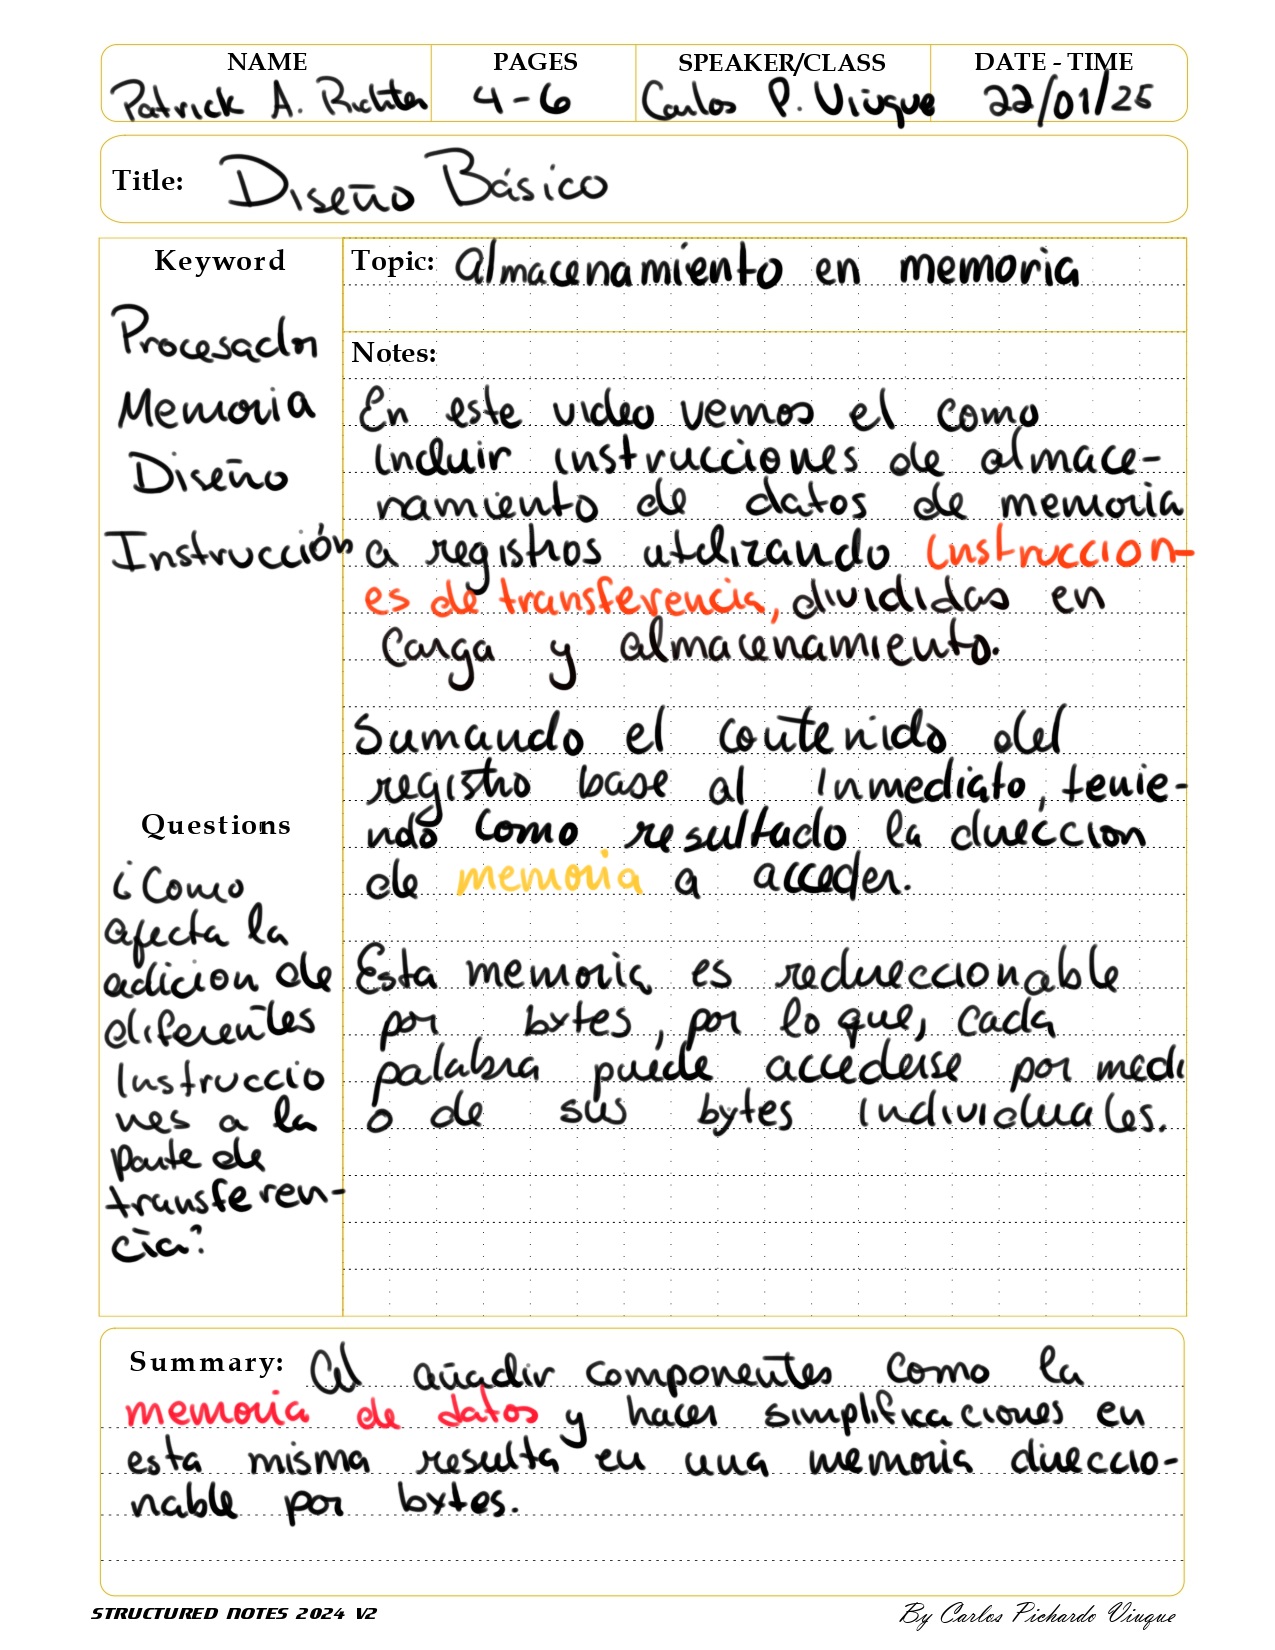 NAME PAGES SPEAKER/CLASS DATE - TIME
Patrick A. Richter 4-6 Carlos P. Viuque 22/01/25
Title: Diseño Básico
Keyword
Procesador
Memoria
Diseño
Instrucción
Questions
¿Como
afecta la
adicion de
diferentes
Instruccio
nes a la
parte de
transferen-
cia?
Topic: Almacenamiento en memoria
Notes:
En este video vemos el como
incluir instrucciones de almace-
namiento de datos de memoria
a registros utilizando instruccion-
es de transferencia, divididas en
Carga y almacenamiento.
Sumando el contenido del
registro base al inmediato, tenie-
ndo como resultado la direccion
de memoria a acceder.
Esta memoria es redireccionable
por bytes, por lo que, cada
palabra puede accederse por medi
o de sus bytes individuales.
Summary: Al añadir componentes como la
memoria de datos y hacer simplificaciones en
esta misma resulta en una memoria direccio-
nable por bytes.
STRUCTURED NOTES 2024 V2 By Carlos Pichardo Viuque